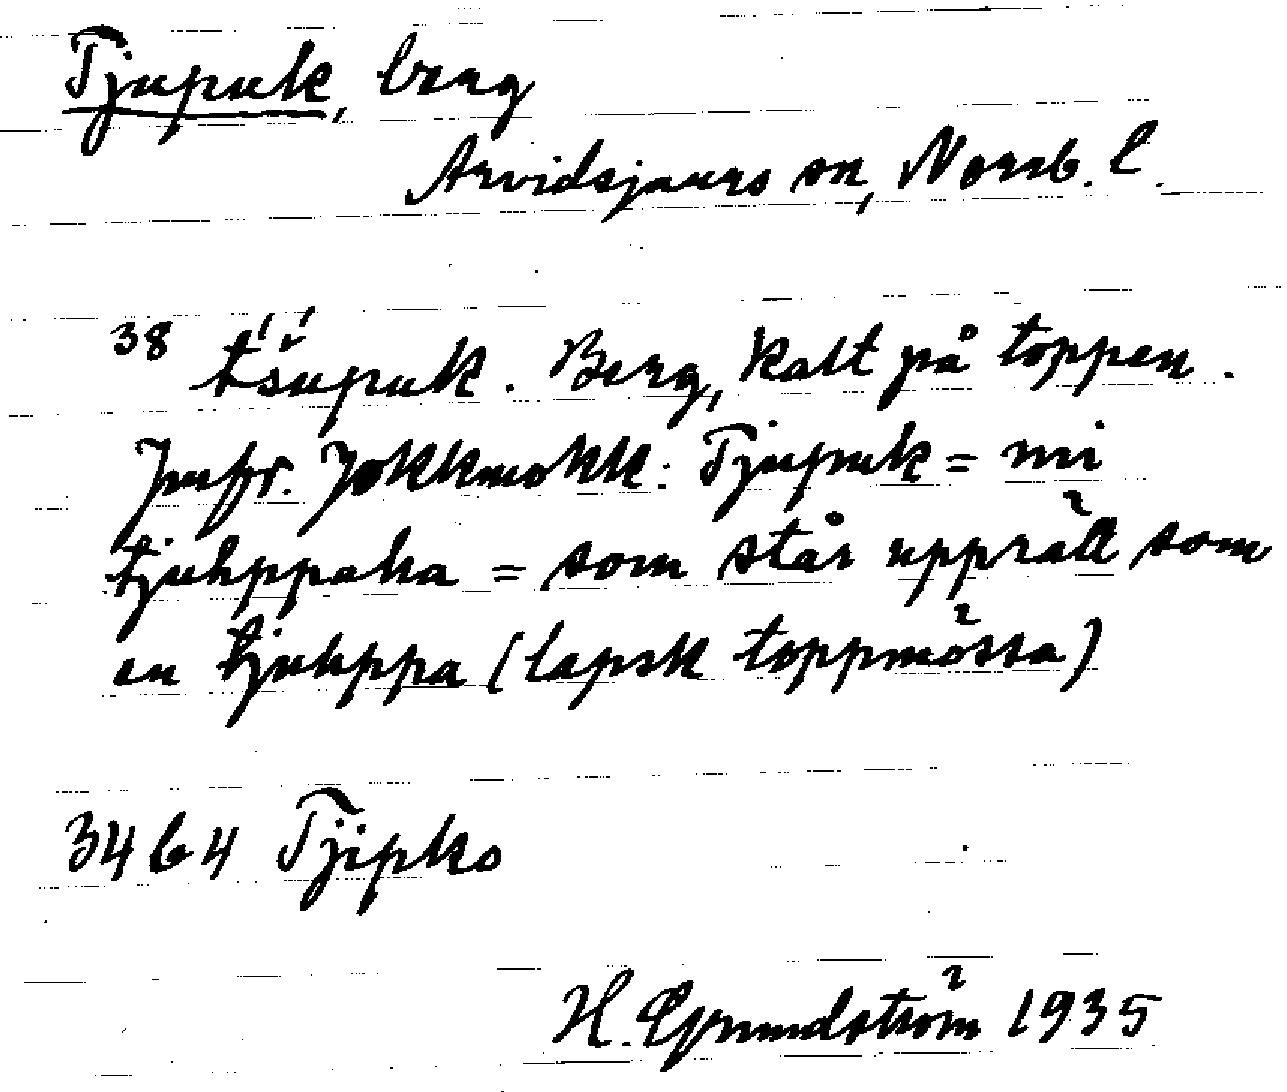 Tjupuk, berg
Arvidsjaurs sn, Norrb. l.
38 t́šupuk. Berg, kalt på toppen.
Jufr. Jokkmokk: Tjupuk = mi
tjuhppaka = som står upprätt som
en tjuhppa (lapsk toppmössa)
3464 Tjipko
H. Grundström 1935